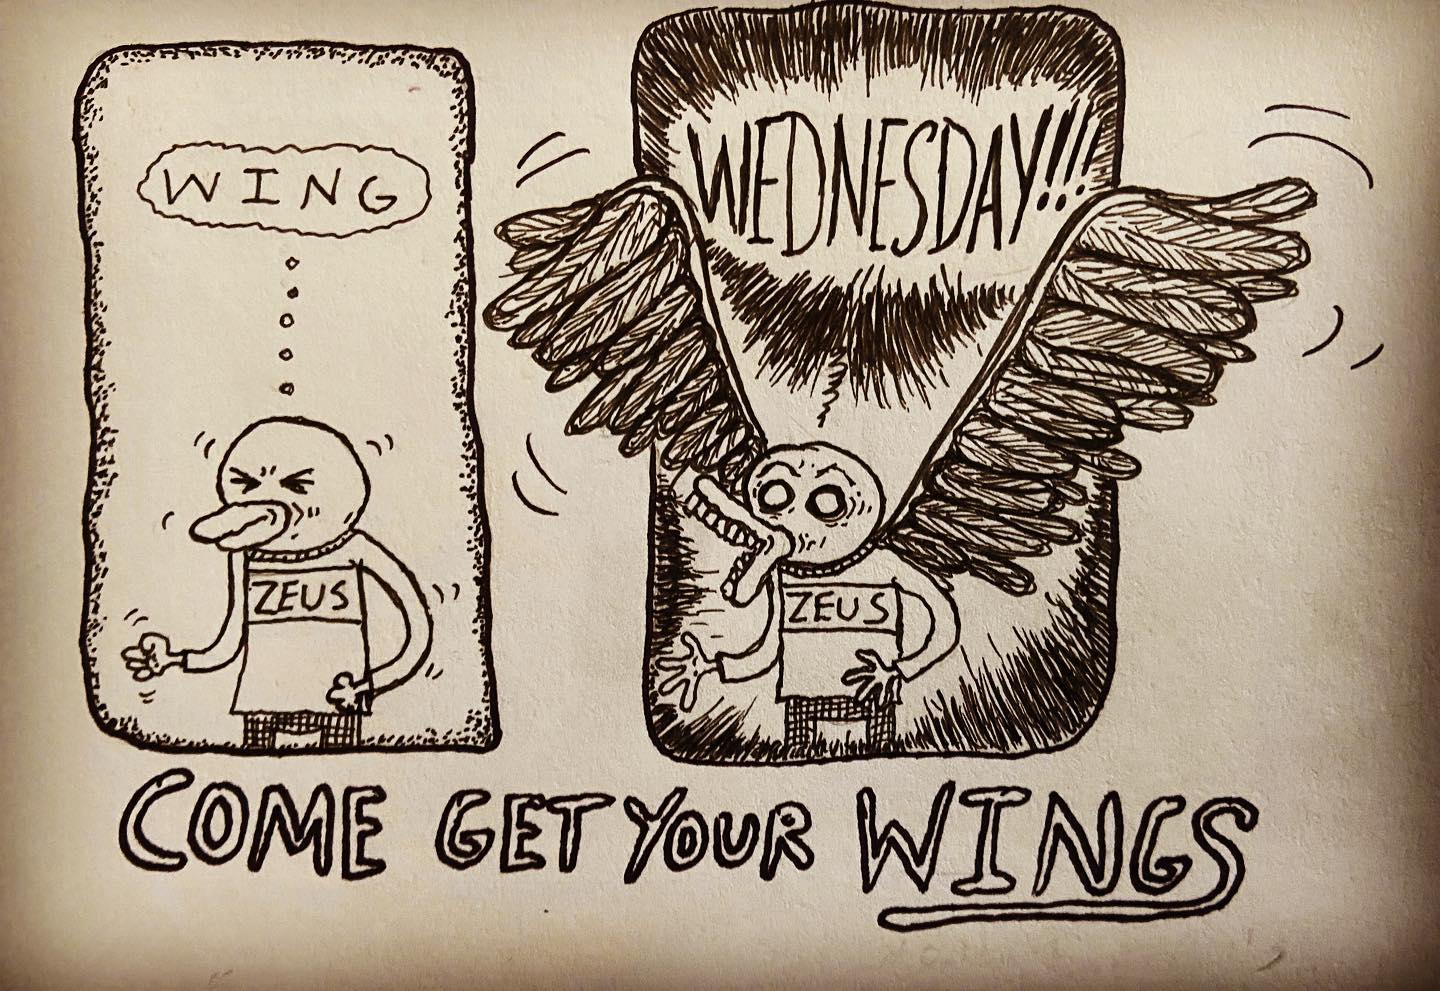 WING
ZEUS
WEDNESDAY!!!
ZEUS
COME GET YOUR WINGS